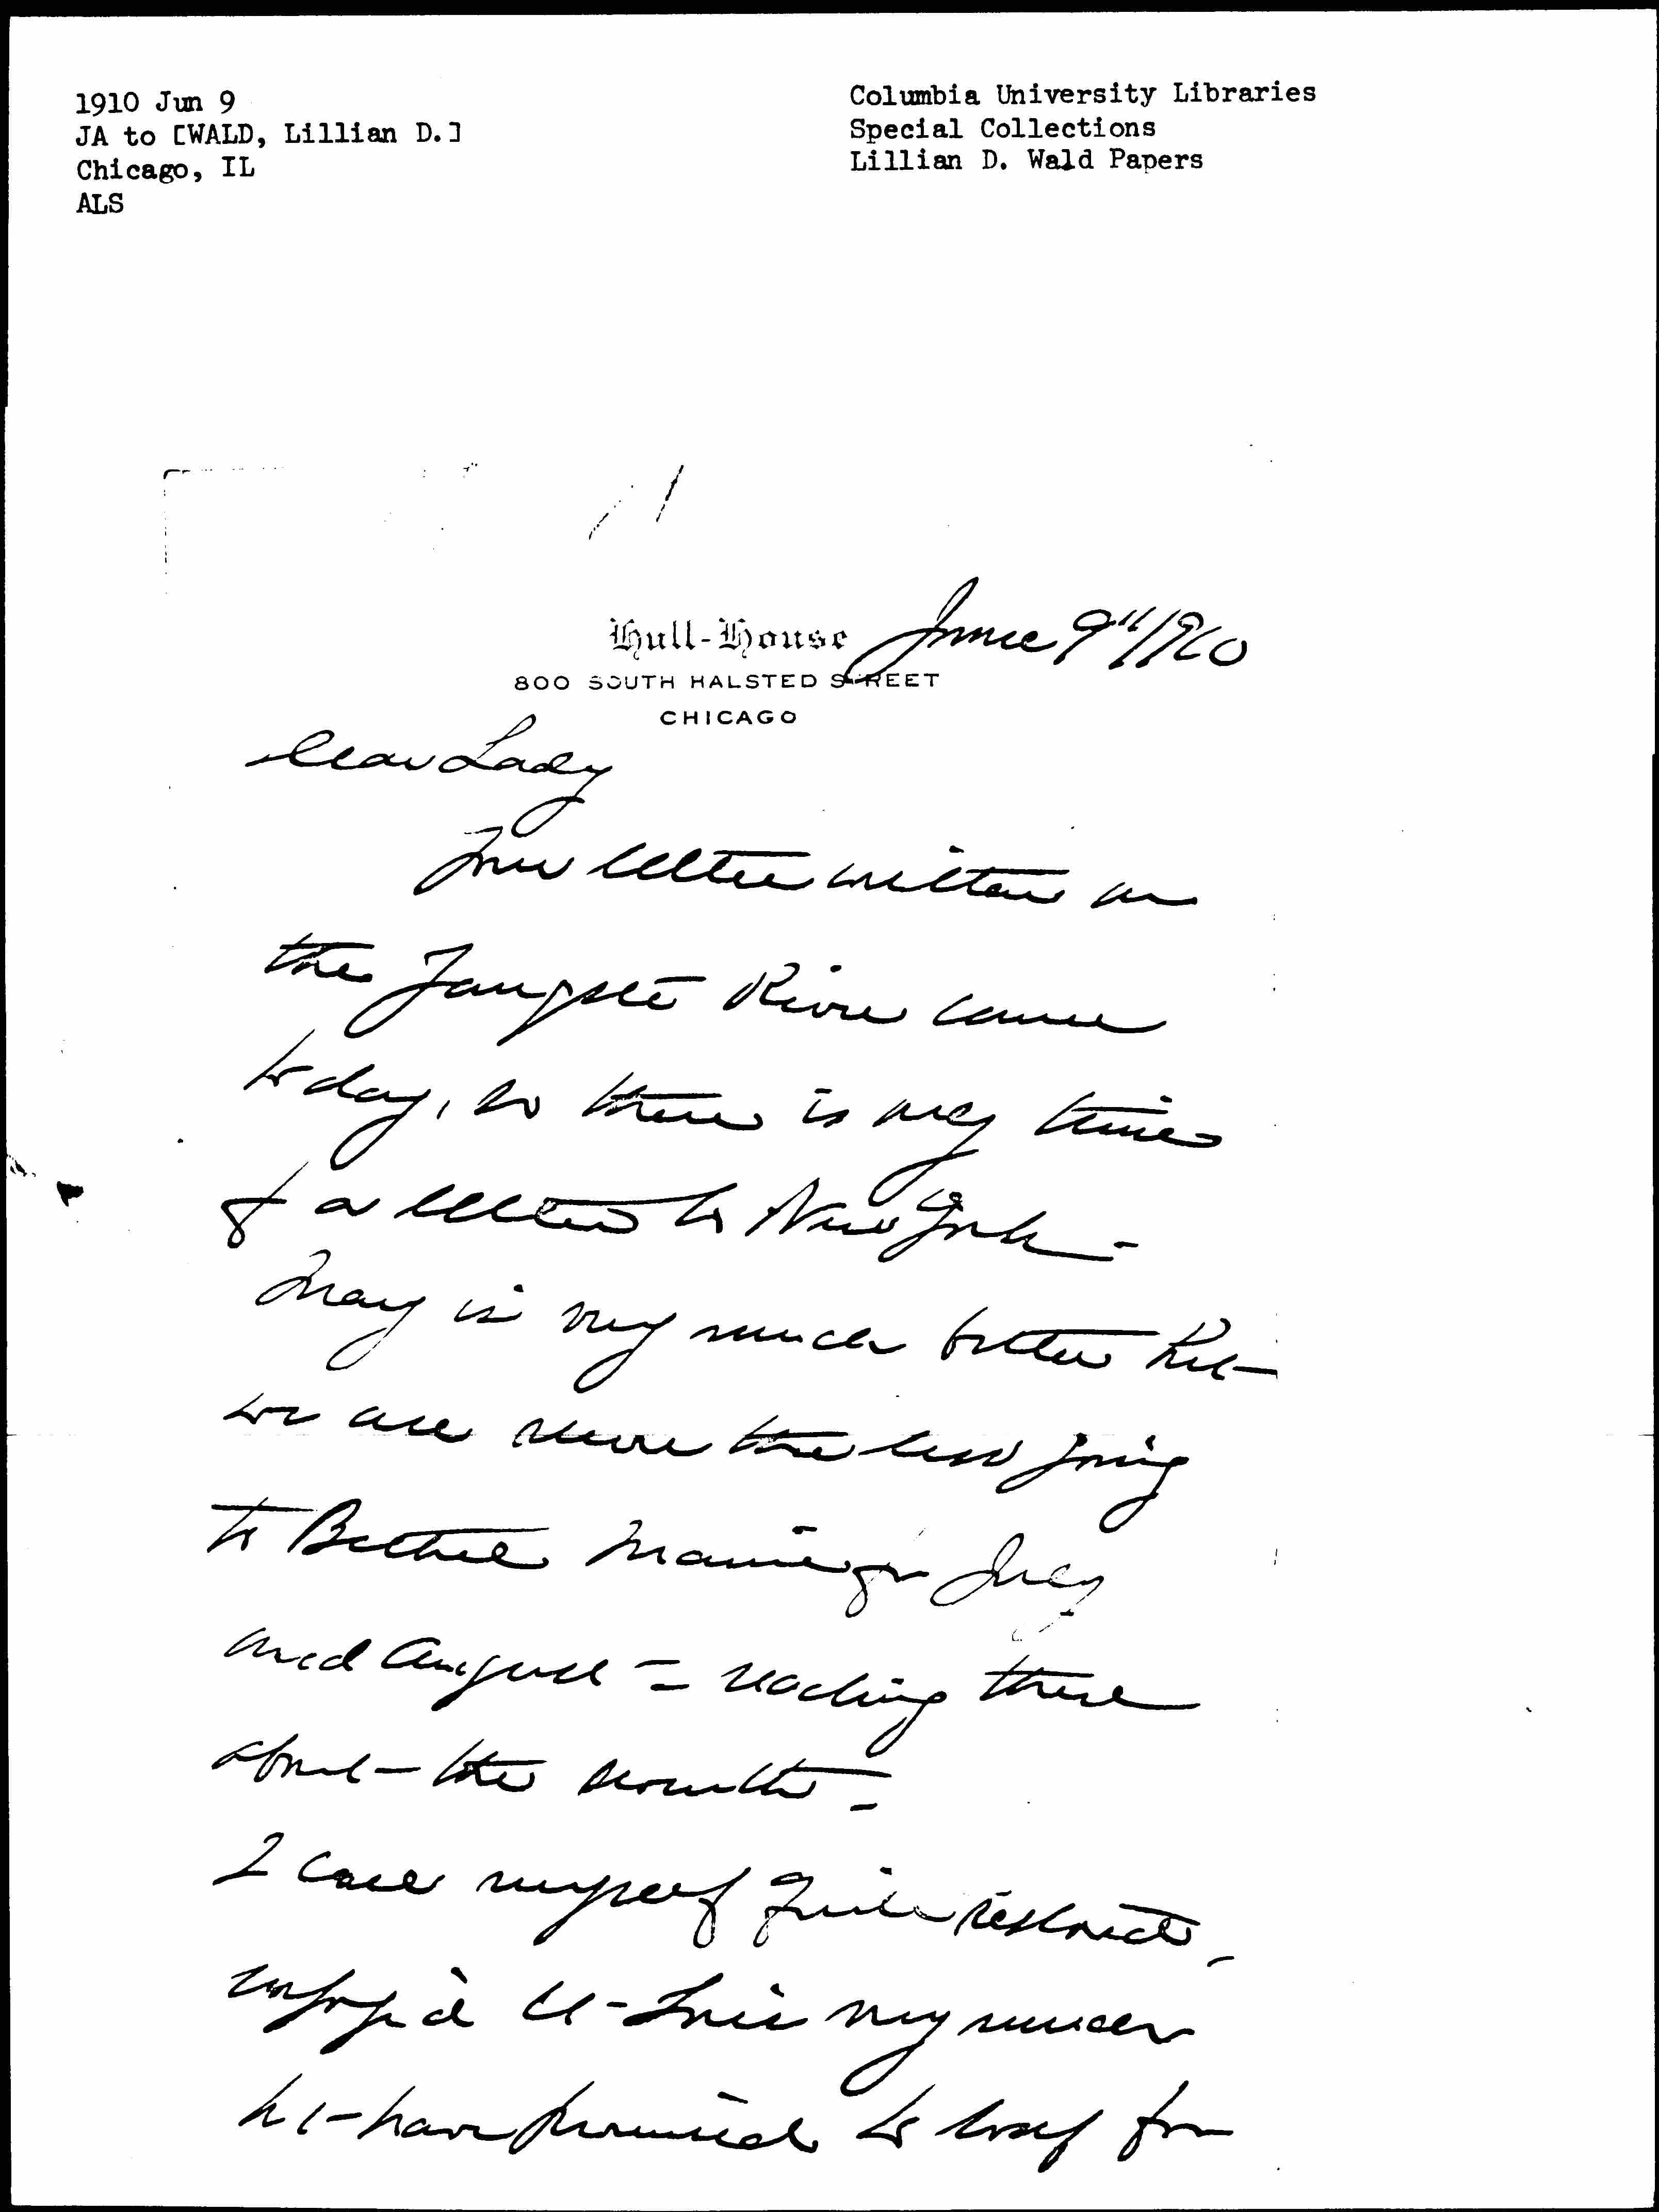 1910 Jun 9
JA to [WALD, Lillian D.]
Chicago, IL
ALS
Columbia University Libraries
Special Collections
Lillian D. Wald Papers
Hull-House June 9" 1910
800 SOUTH HALSTED STREET
CHICAGO
Dear Lady
Your letter written on
the Yangste River came
today, so there is my time
of a letter to New York -
Mary is very much better but
we are none the less going
to Bethel Maine for July
and August - reaching there
about the
I call myself quite restored,
enjoy'd St. Louis very much
but have promised to loaf for